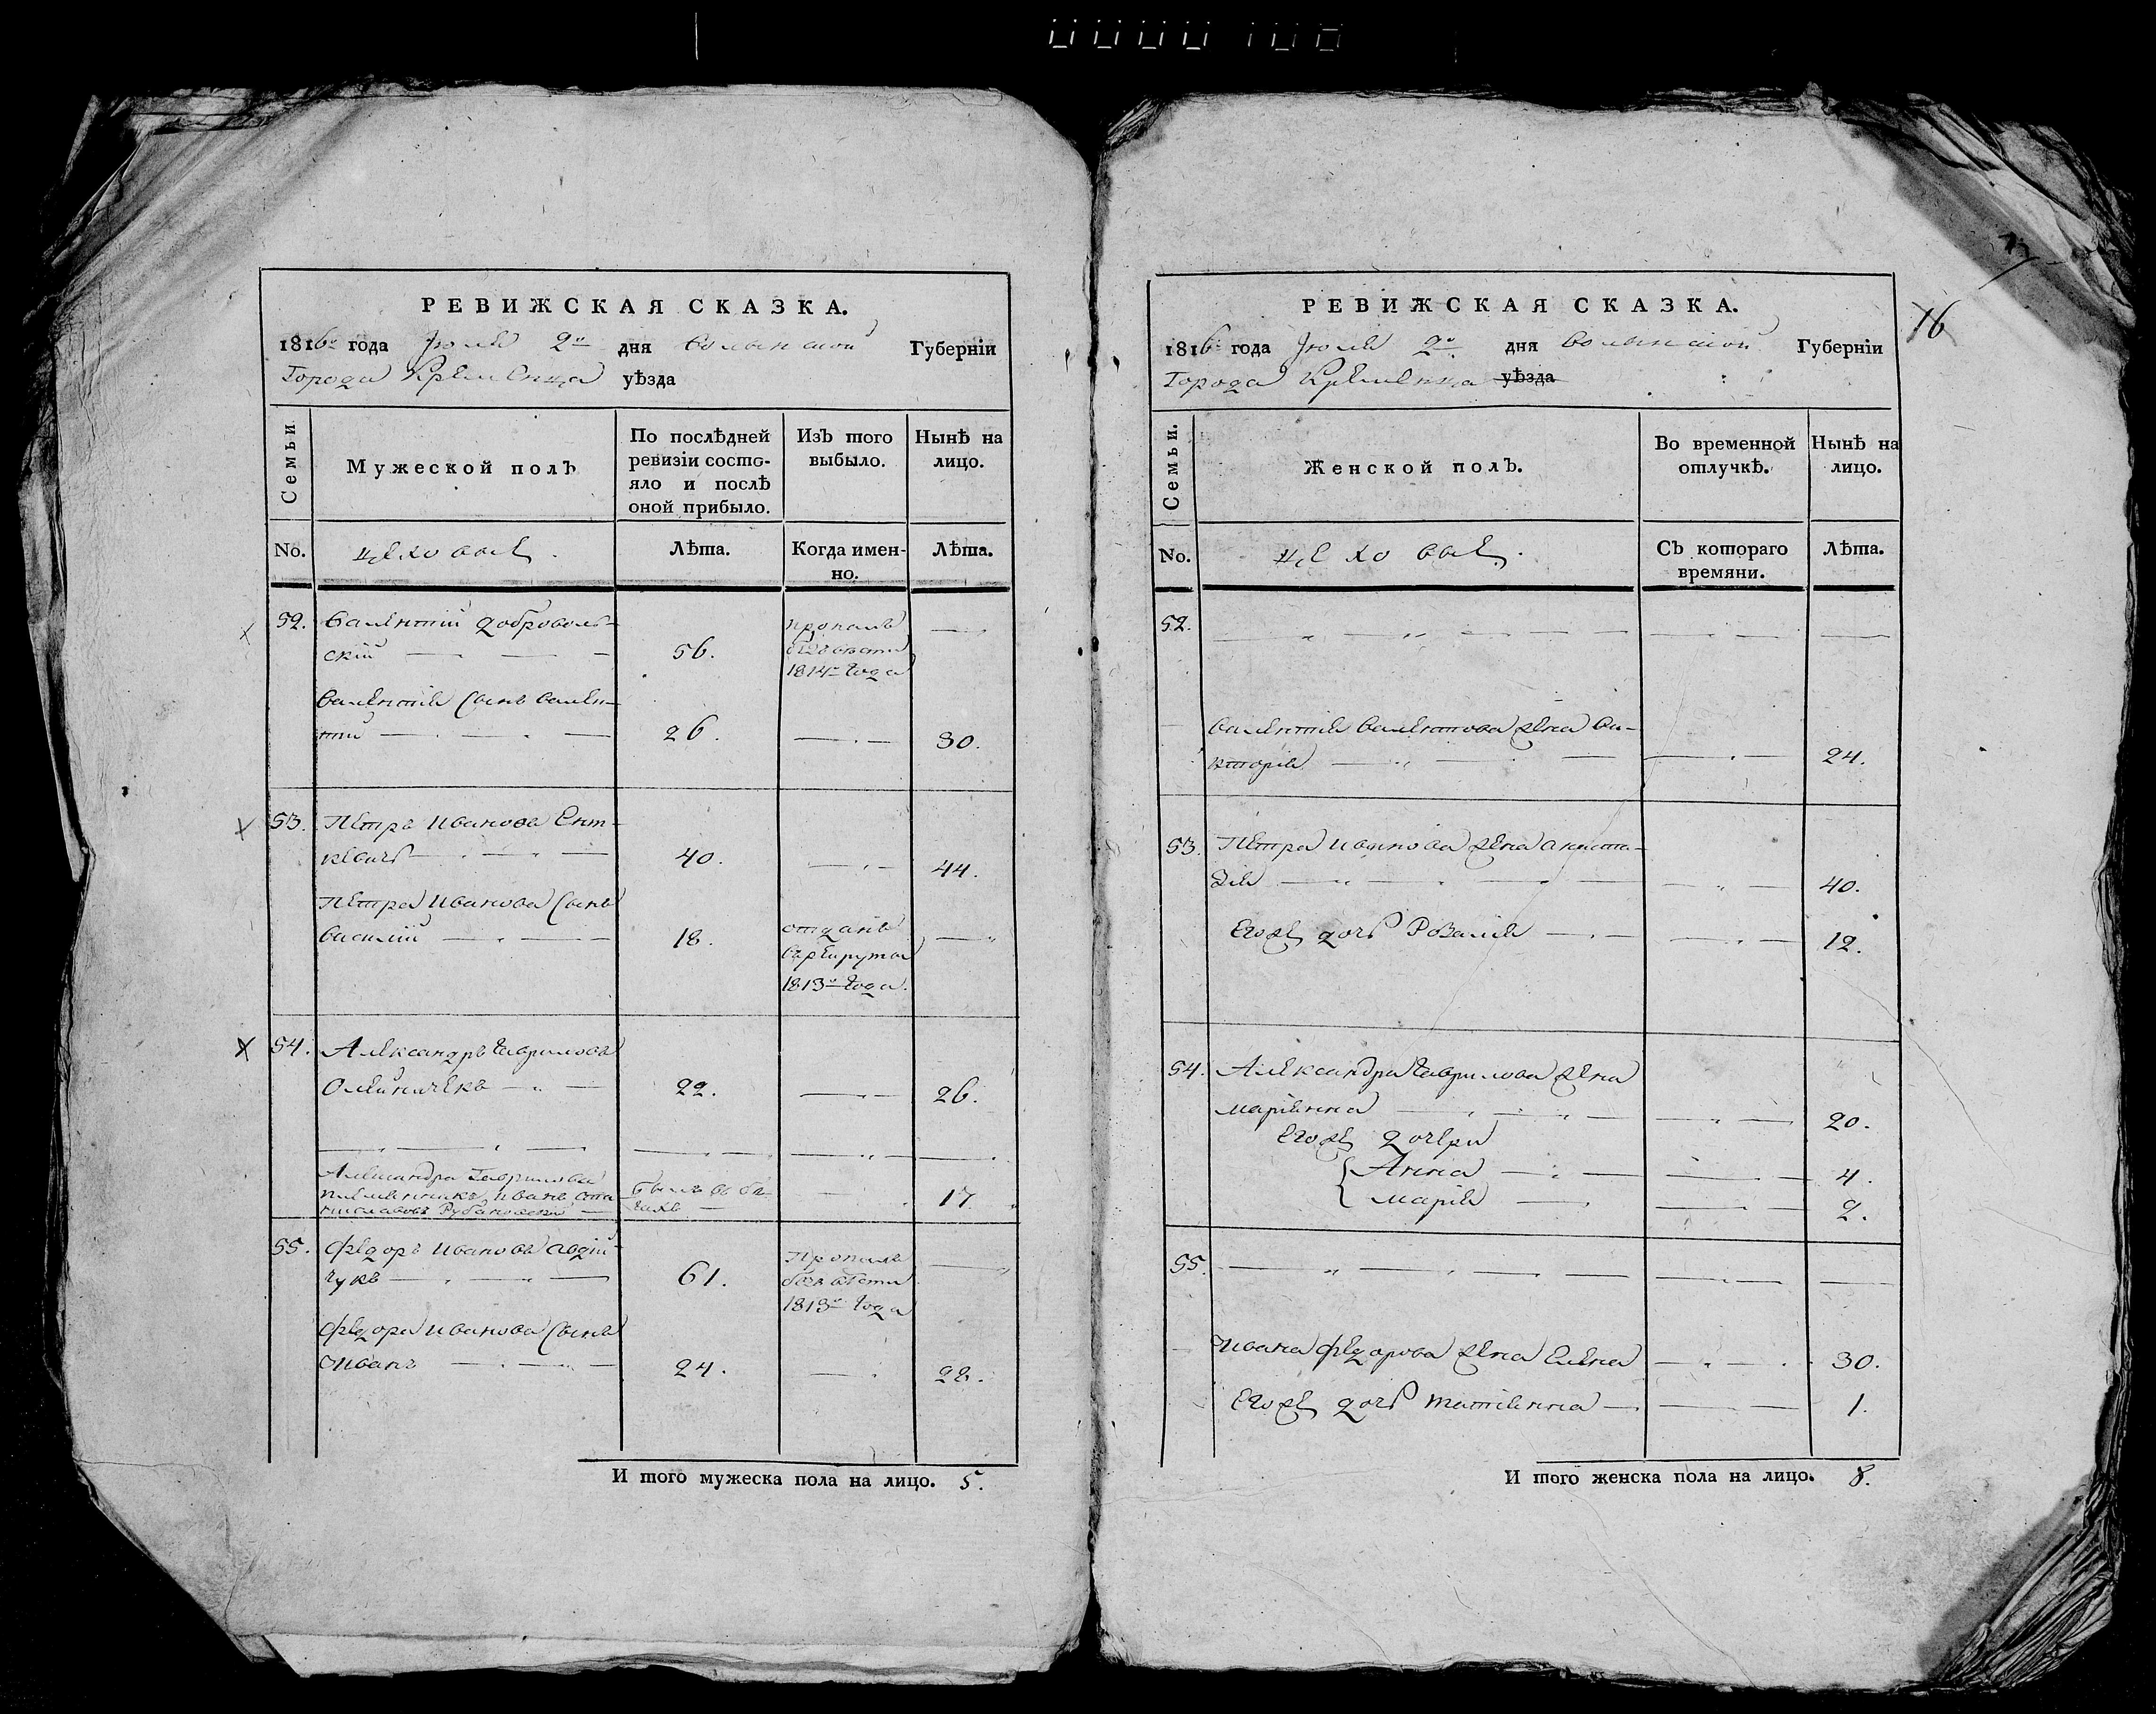 РЕВИЖСКАЯ СКАЗКА.
1816го года Июля 2го дня Волынской Губерніи
Города Кременца уѣзда
Семьи.
Мужеской полъ
По послѣдней
ревизіи состо-
яло и послѣ
оной прибыло.
Изъ того
выбыло.
Нынѣ на
лицо.
No.
цеховые.
Лѣта.
Когда имен-
но.
Лѣта.
52. Валентій Доброволь-
скій 56.
пропалъ
безвѣсти
1814го года
Валентія сынъ Вален-
тій 26. 30.
53. Петръ Иванова Ент-
кевичъ 40. 44.
Петра Иванова сынъ
Василій 18.
отданъ
в рекруты
1813го года.
54. Александръ Гавриловъ
Олейничекъ 22. 26.
Александра Гаврилова
племенникъ Иванъ Ста
ниславовъ Рубановскій 17.
55. Федоръ Ивановъ Авдій-
чукъ 61.
Пропалъ
безвѣсти
1813го года
Федора Иванова сынъ
Иванъ 24. 28.
И того мужеска пола на лицо. 5.
16
РЕВИЖСКАЯ СКАЗКА.
1816го года Июля 2го дня Волынской Губерніи
Города Кременца уѣзда
Семьи.
Женской полъ.
Во временной
отлучкѣ.
Нынѣ на
лицо.
No.
цеховые.
Съ котораго
времяни.
Лѣта.
52.
Валентія Валентова жена Ви-
кторія 24.
53. Петра Иванова жена Анаста-
зія 40.
Егоже дочь Розалія 12.
54. Александра Гаврилова жена
Маріянна 20.
Егоже дочери
Анна 4.
Марія 2.
55.
Ивана Федорова жена Елена 30.
Егоже дочь Татіянна 1.
И того женска пола на лицо. 8.